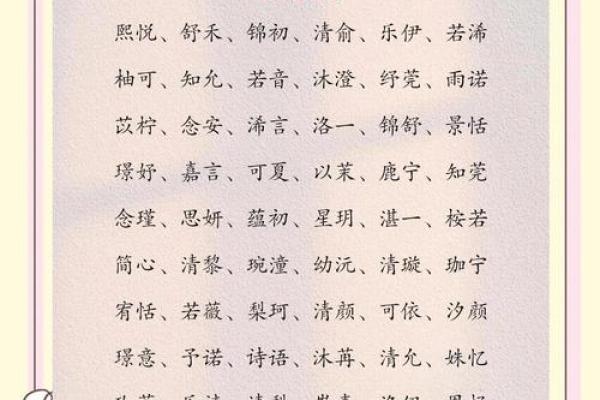 熙悦、舒禾、锦初、清俞、乐伊、若浠
柚可、知允、若音、沐澄、纾莞、雨诺
苡柠、念安、浠言、洛一、锦舒、景恬
璟妤、嘉言、可夏、以茉、鹿宁、知莞
念瑾、思妍、蕴初、星玥、湛一、桉若
简心、清黎、琬潼、幼沅、清璇、珈宁
宥恬、若薇、梨珂、清颜、可依、汐颜
璟意、予诺、诗语、沐苒、清允、姝忆